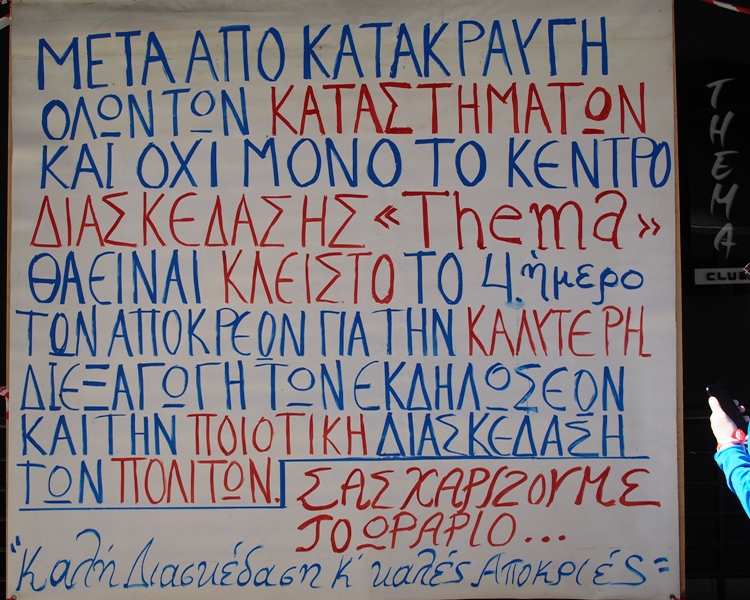 ΜΕΤΑ ΑΠΟ ΚΑΤΑΚΡΑΥΓΗ
ΟΛΩΝ ΤΩΝ ΚΑΤΑΣΤΗΜΑΤΩΝ
ΚΑΙ ΟΧΙ ΜΟΝΟ ΤΟ ΚΕΝΤΡΟ
ΔΙΑΣΚΕΔΑΣΗΣ «Thema»
ΘΑ ΕΙΝΑΙ ΚΛΕΙΣΤΟ ΤΟ 4ήμερο
ΤΩΝ ΑΠΟΚΡΕΩΝ ΓΙΑ ΤΗΝ ΚΑΛΥΤΕΡΗ
ΔΙΕΞΑΓΩΓΗ ΤΩΝ ΕΚΔΗΛΩΣΕΩΝ
ΚΑΙ ΤΗΝ ΠΟΙΟΤΙΚΗ ΔΙΑΣΚΕΔΑΣΗ
ΤΩΝ ΠΟΛΙΤΩΝ.
ΣΑΣ ΧΑΡΙΖΟΥΜΕ
ΤΟ ΩΡΑΡΙΟ...
"Καλή Διασκέδαση Κ' καλές Αποκριές"
THEMA
CLUB